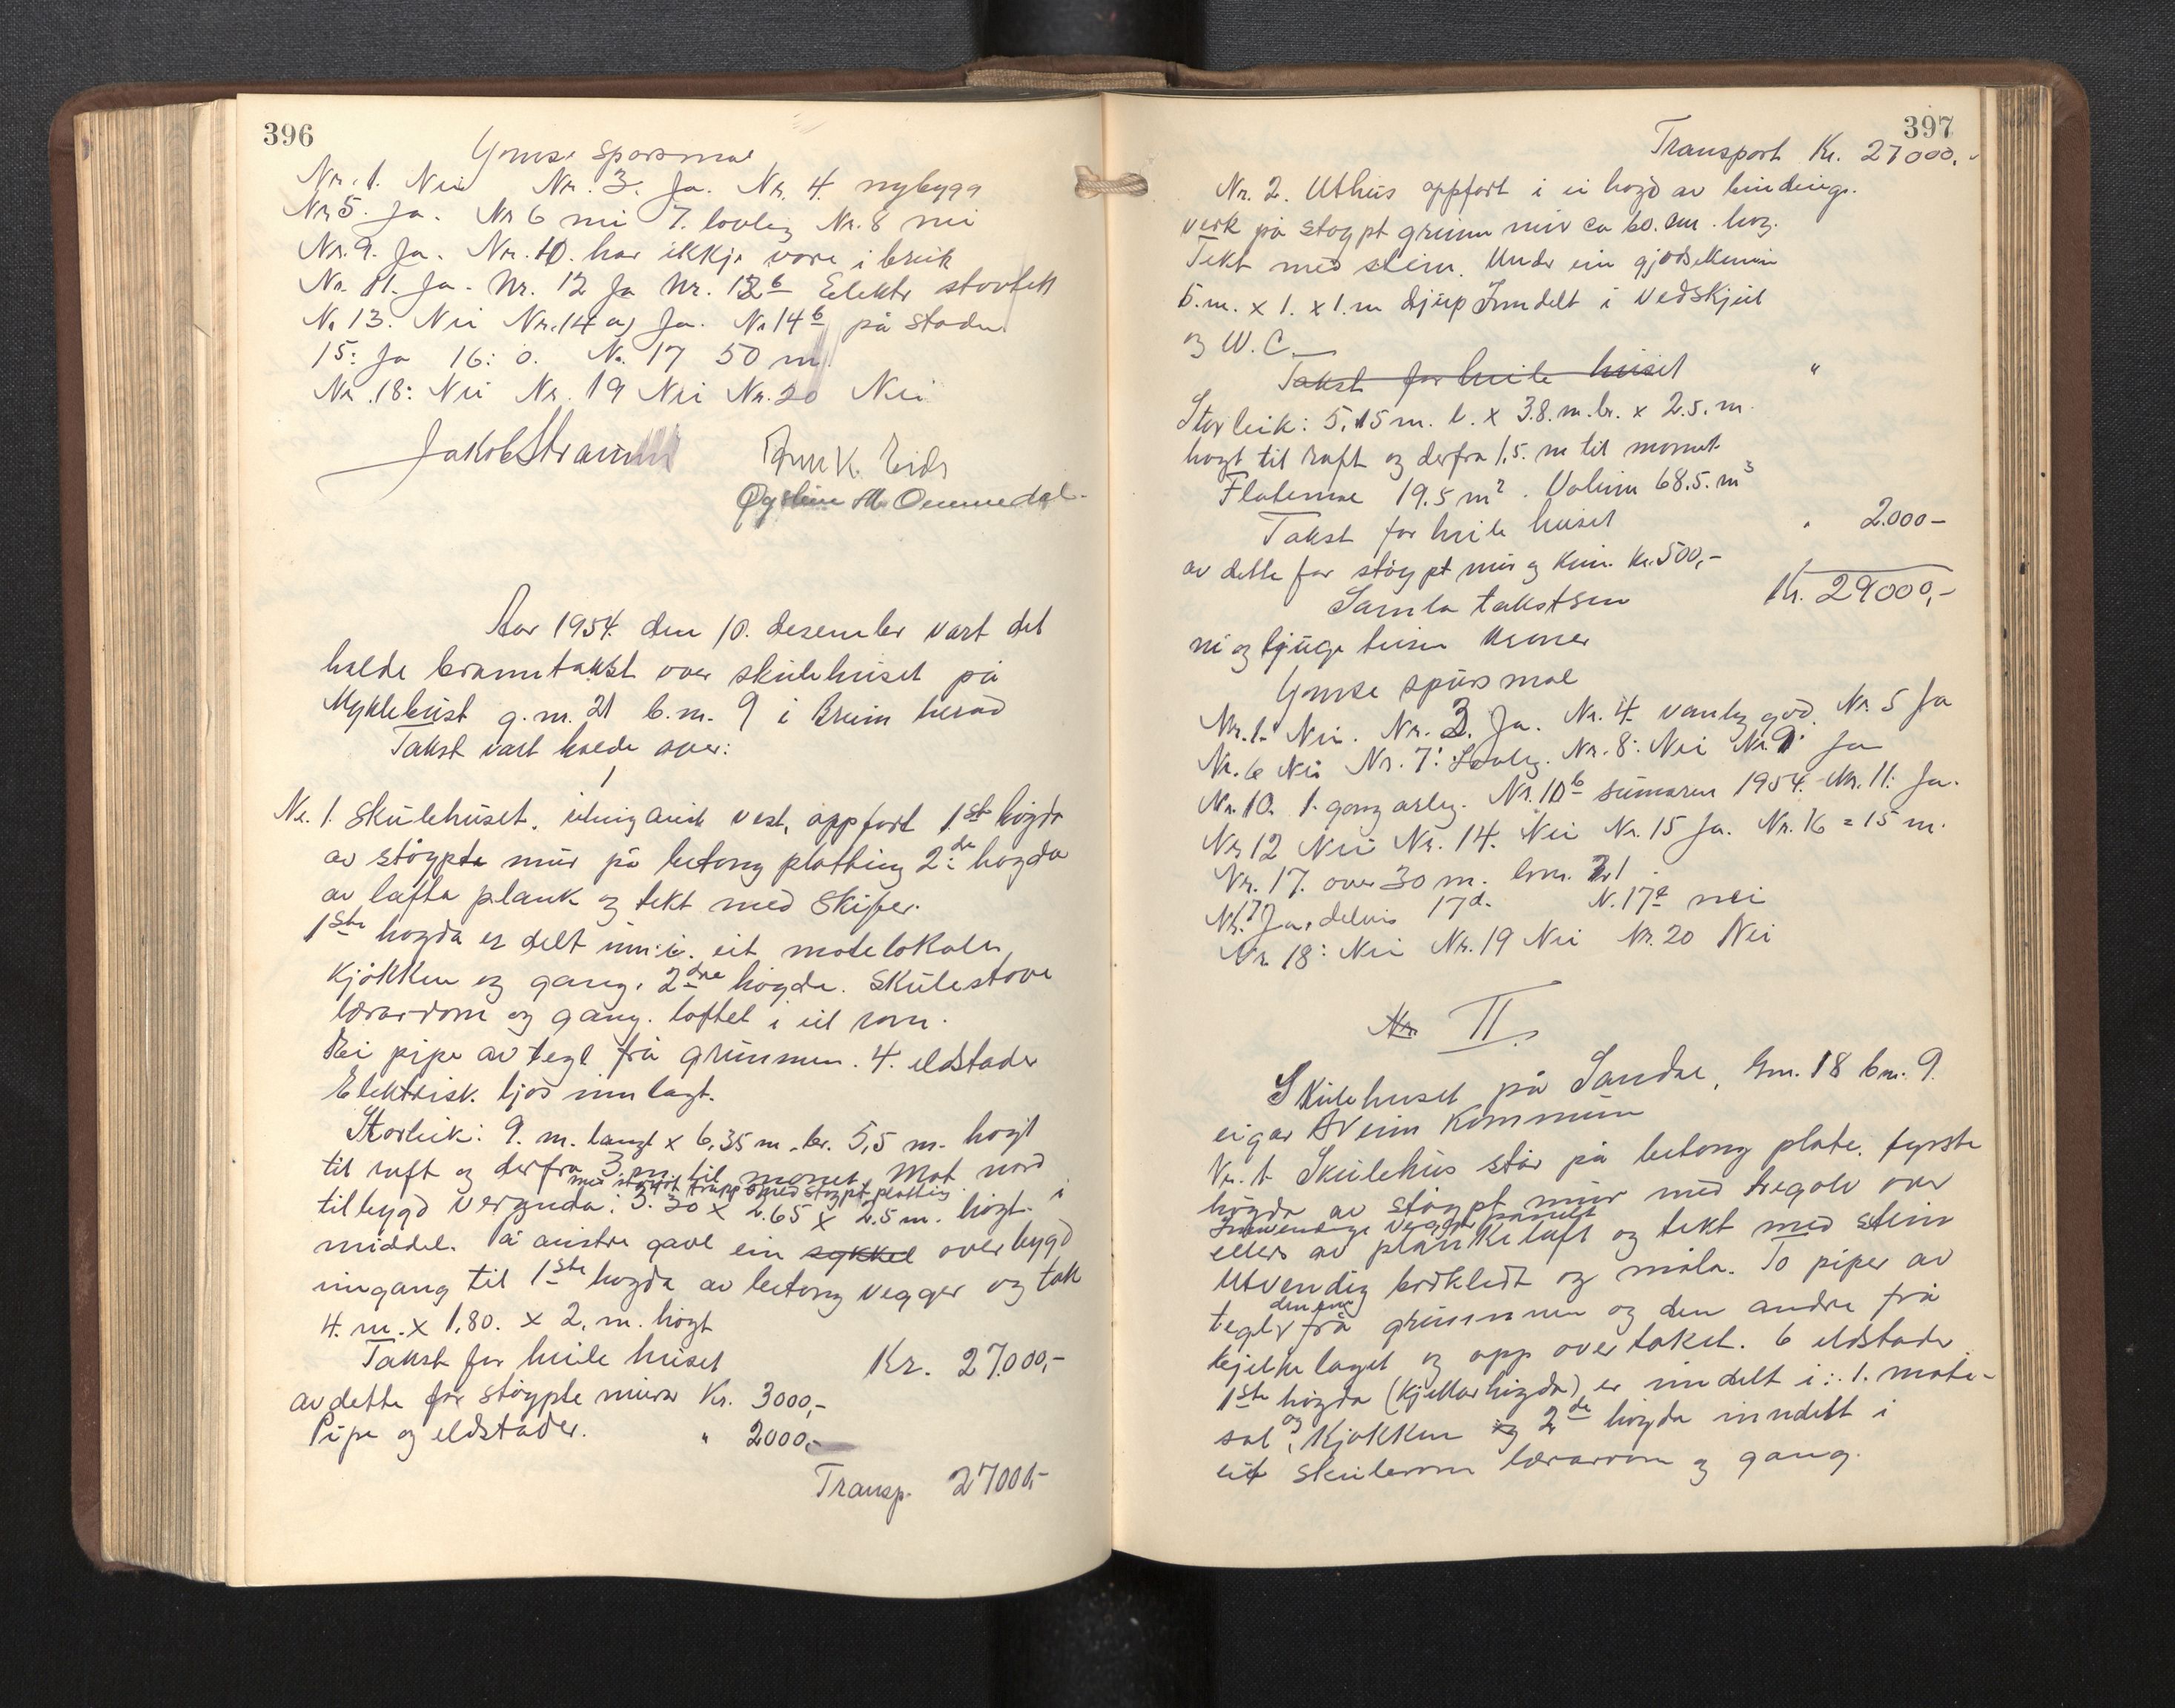 396
Ymse sporsmal
Nr. 1. Nei Nr. 3. Ja. Nr. 4. nybygg
Nr 5. Ja. Nr 6 nei 7. lovleg Nr. 8 nei
Nr. 9. Ja. Nr. 10. har ikkje vore i bruk
Nr. 11. Ja. Nr. 12 Ja Nr. 12b Elektr
Nr 13. Nei Nr. 14 a) Ja. Nr 14b på staden
15: Ja 16: 0. Nr. 17 50 m
Nr. 18: Nei Nr. 19 Nei Nr. 20 Nei
Jakob
Øystein M Ommedal.
Aar 1954. den 10. desember vart det
halde branntakst over skulehuset på
Myklebust g.nr. 21 b.nr. 9 i Breim herad
Takst vart halde over:
Nr. 1. Skulehuset. vest, oppført 1ste høgda
av støypte mur på betong platting 2de høgda
av lafta plank og tekt med skifer.
1ste høgda er delt inn i. eit møtelokale,
Kjøkken og gang. 2dre høgda. Skulestove
lærarrom og gang. loftet i eit rom.
Ei pipe av tegl frå grunnen. 4. eldstader
Elektrisk ljos innlagt.
Storleik: 9. m. langt x 6,35 m. br. 5,5 m. høgt
til raft og derfra 3. m. til mønet. Mot nord
med støypt trapp og med støypt platting
tilbygd veranda: 3.30 x 2.65 x 2.5 m. høgt i
middel. På austre gavl ein sykkel overbygd
inngang til 1ste høgda av betong vegger og tak
4. m. x 1,80. x 2. m. høgt
Takst for heile huset Kr. 27.000,-
av dette for støypte murar Kr. 3000,-
Pipe og eldstader. " 2000,-
Transp. 27000,-
397
Transport Kr. 27000,-
Nr. 2. Uthus oppført i ei høgd av bindings-
verk på støypt grunn mur ca 60. cm. høg.
Tekt med stein. Under ein gjødselkum
5. m. x 1. x 1. m djup Inndelt i vedskjul
og W.C.
Takst for heile huset "
Storleik: 5,15 m. l. x 3.8. m. br. x 2.5. m.
høgt til raft og derfra 1,5. m til mønet
Flateinnh 19.5 m². Volum 68.5. m³
Takst for heile huset " 2.000-
av dette for støypt mur og kum. Kr. 500,-
Samla takstsum Kr. 29000,-
ni og tjuge tusen kroner
Ymse spursmal
Nr. 1. Nei. Nr. 3. Ja. Nr. 4. vanleg god. Nr. 5 Ja
Nr. 6 Nei Nr. 7: Lovleg. Nr. 8: Nei Nr. 9: Ja
Nr. 10. 1. gong årleg. Nr. 10b sumaren 1954. Nr. 11: Ja.
Nr 12 Nei Nr. 14. Nei Nr. 15 Ja. Nr. 16 = 15 m.
Nr. 17. over 30 m.
Nr. 17 Ja, delvis 17d. N. 17e nei
Nr. 18: Nei Nr. 19 Nei Nr. 20 Nei
Nr II.
Skulehuset på Sandal, Gnr. 18 bnr. 9.
eigar Breim Kommune
Nr. 1 Skulehus står på betong plate. fyrste
høgda av støypt mur med tregolv over
Innvendige vegger panelt
ellers av plankelaft og tekt med stein
Utvendig bordkledt og måla. To piper av
den eine
tegl frå grunnen og den andre frå
bjelkelaget og opp over taket. 6 eldstader
1ste høgda (Kjellarhøgda) er inndelt i: 1. møte-
sal og Kjøkken og 2de høgda inndelt i
eit skulerom lærarrom og gang.